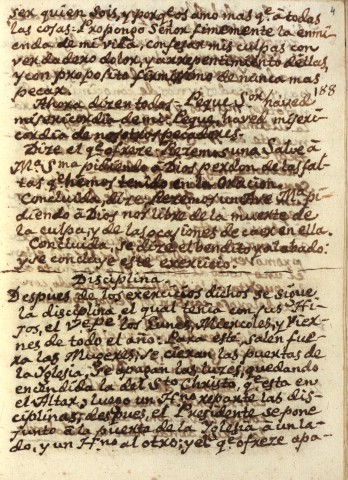 ser quien sois, y porq.e os amo mas q.e à todas
las cosas: Propongo Señor firmemente la enmi-
enda de mi vida, confesar mis culpas con
verdadero dolor, y arrepentimiento de ellas,
y con proposito firmissimo de nunca mas
pecar.
Ahora dizen todos = Peque, S.or, haved
misericordia de mi: Peque, haved miseri-
cordia de nosotros pecadores.
Dize el q.e ofreze: Rezemos una Salve a
M.a S.ma pidiendo à Dios perdon de las fal-
tas q.e hemos tenido en la Oracion.
Concluida, dize: Rezemos un Ave M.a pi-
diendo à Dios nos libre de la muerte de
la culpa, y de las ocasiones de caer en ella.
Concluida, se dize el bendito y alabado:
y se concluye este exercicio.
Disciplina.
Despues de los exercicios dichos se sigue
la disciplina el qual tenia con sus Hi-
jos, el V.e P.e los Lunes, Miercoles, y Vier-
nes de todo el año: Para este, salen fue-
ra las Mugeres; se cierran las puertas de
la Iglesia, se apagan las luzes, quedando
encendida la del S.to Christo, q.e està en
el Altar, luego un H.no reparte las dis-
ciplinas; despues, el Presidente se pone
junto à la puerta de la Iglesia à un la-
do, y un H.no al otro; y el q.e ofreze apa-
4
188